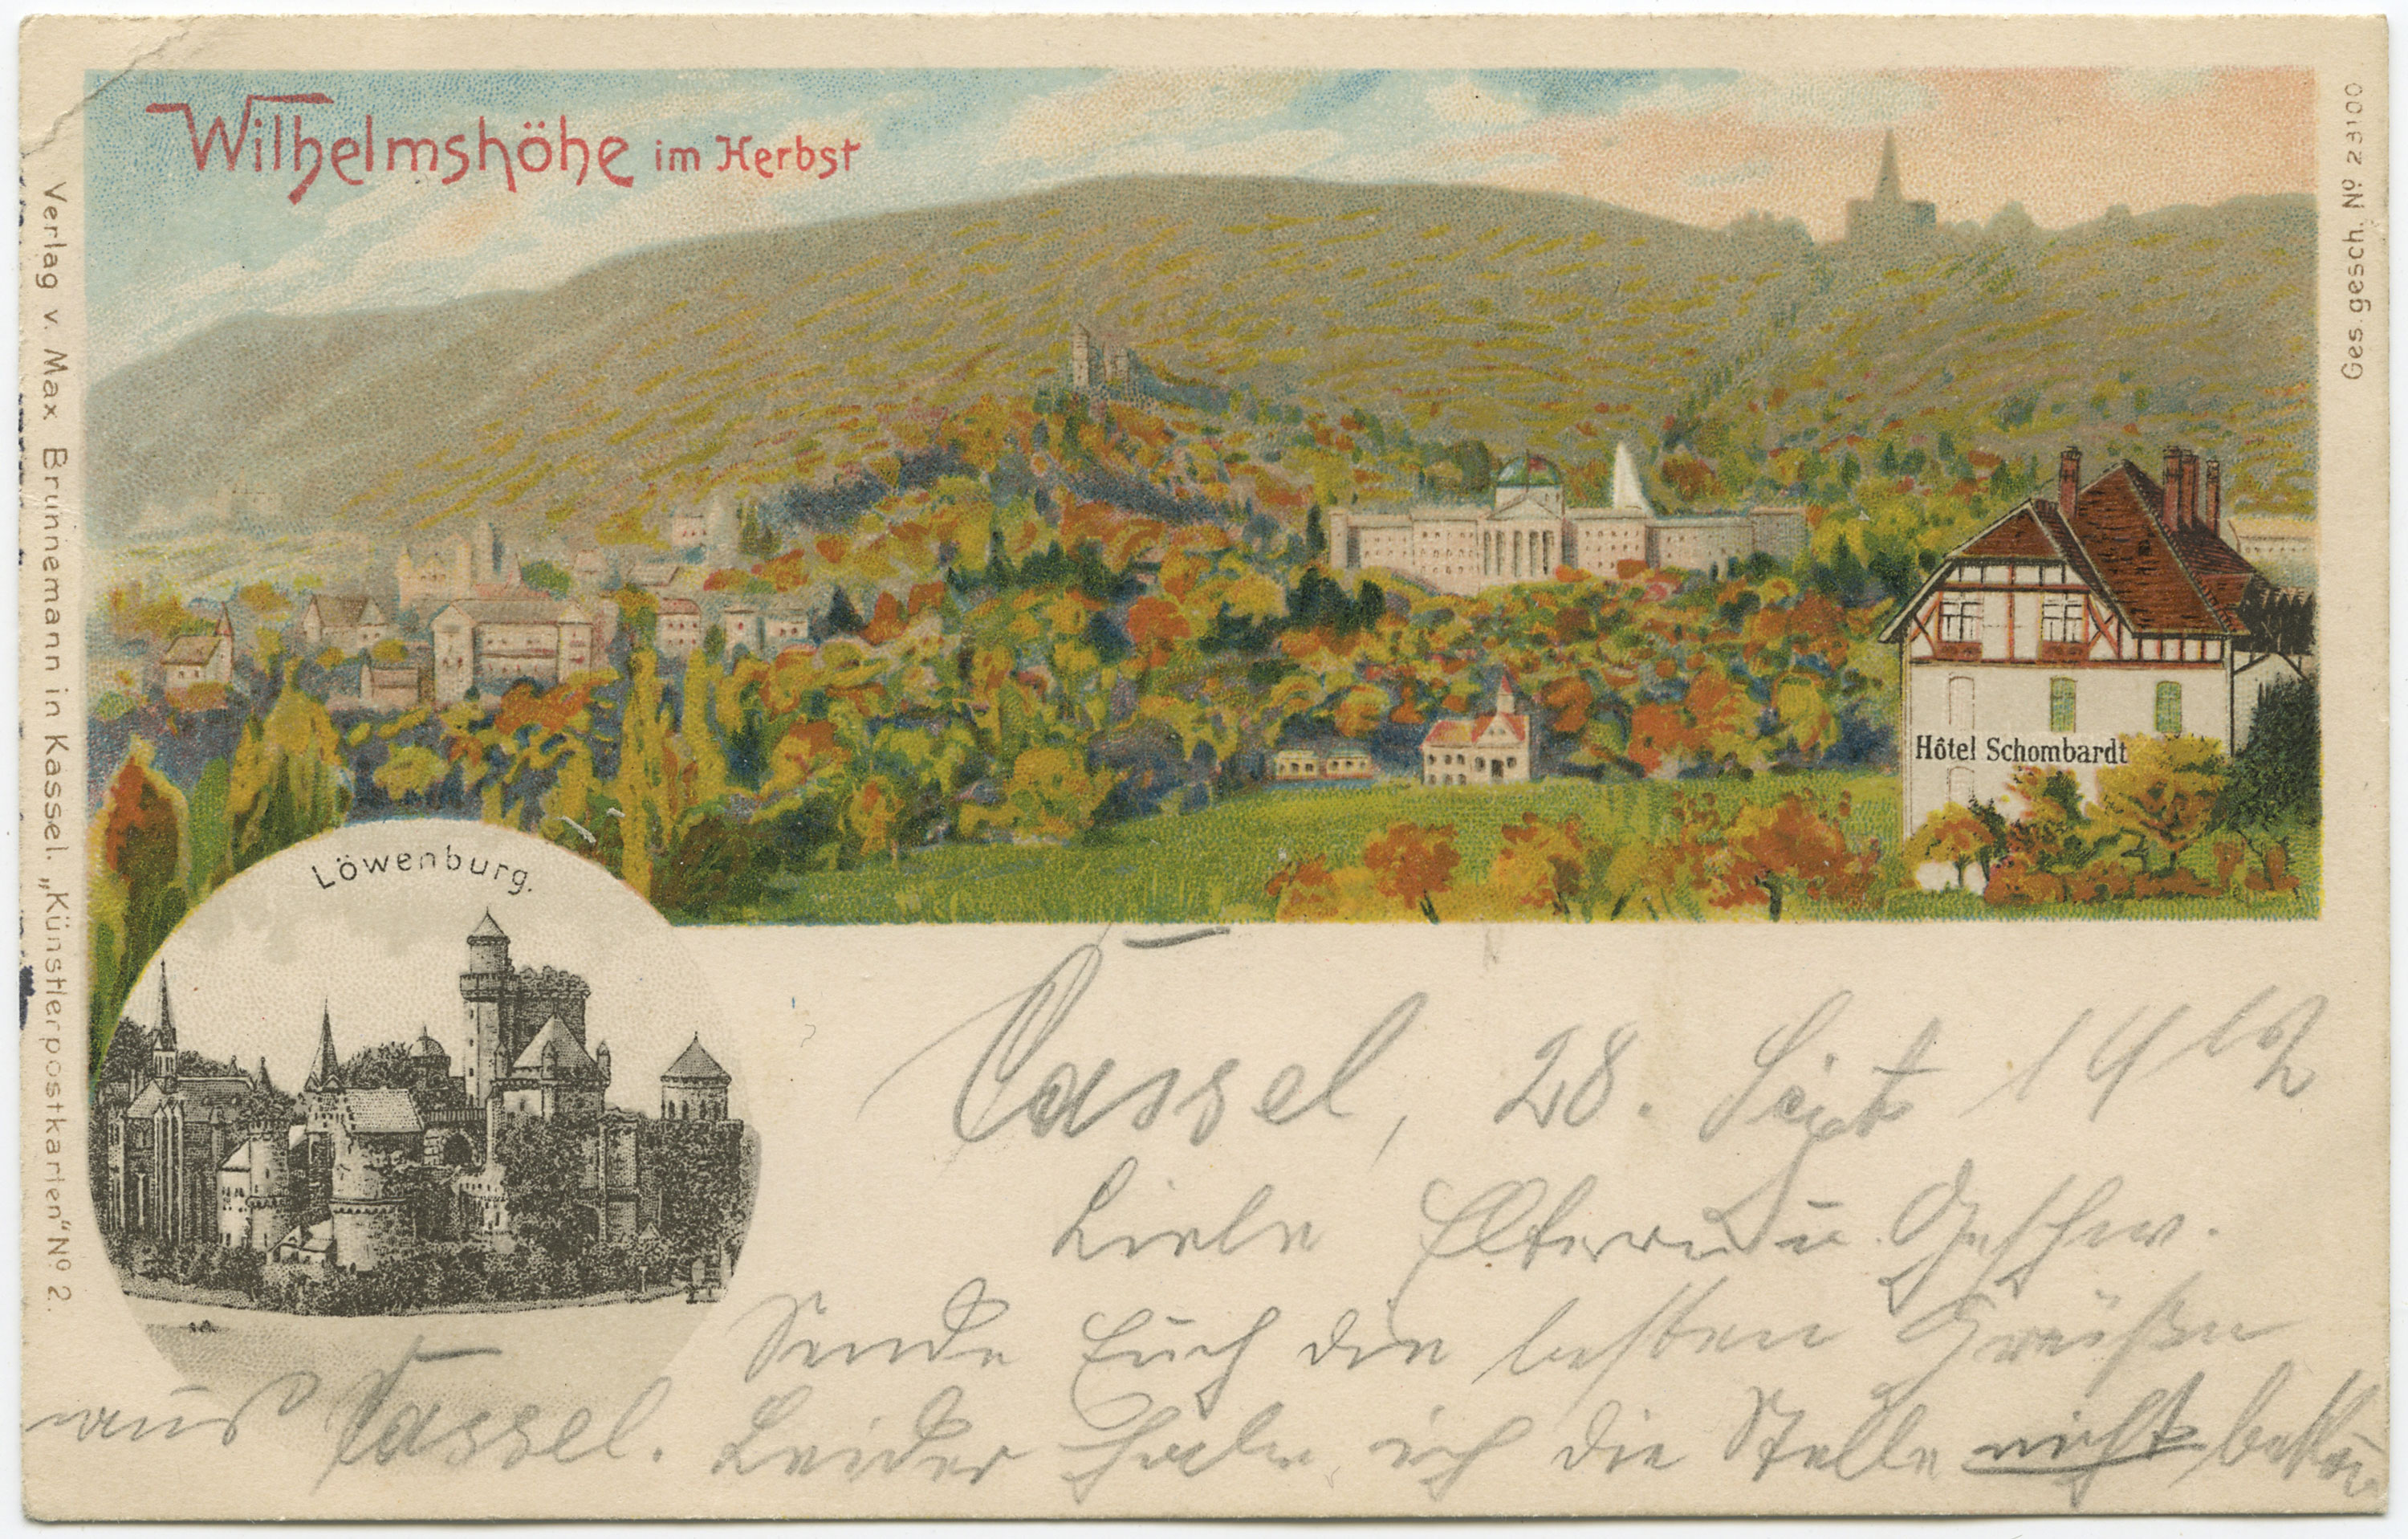 Wilhelmshöhe im Herbst
Ges. gesch. Nº 23100
Verlag v. Max Brunnemann in Kassel. „Künstlerpostkarten“ Nº 2.
Hôtel Schombardt
Löwenburg.
Cassel, 28. Sept.
Liebe Eltern u. Geschw.
Sende Euch die besten Grüße
aus Cassel. Leider habe ich die Stelle nicht